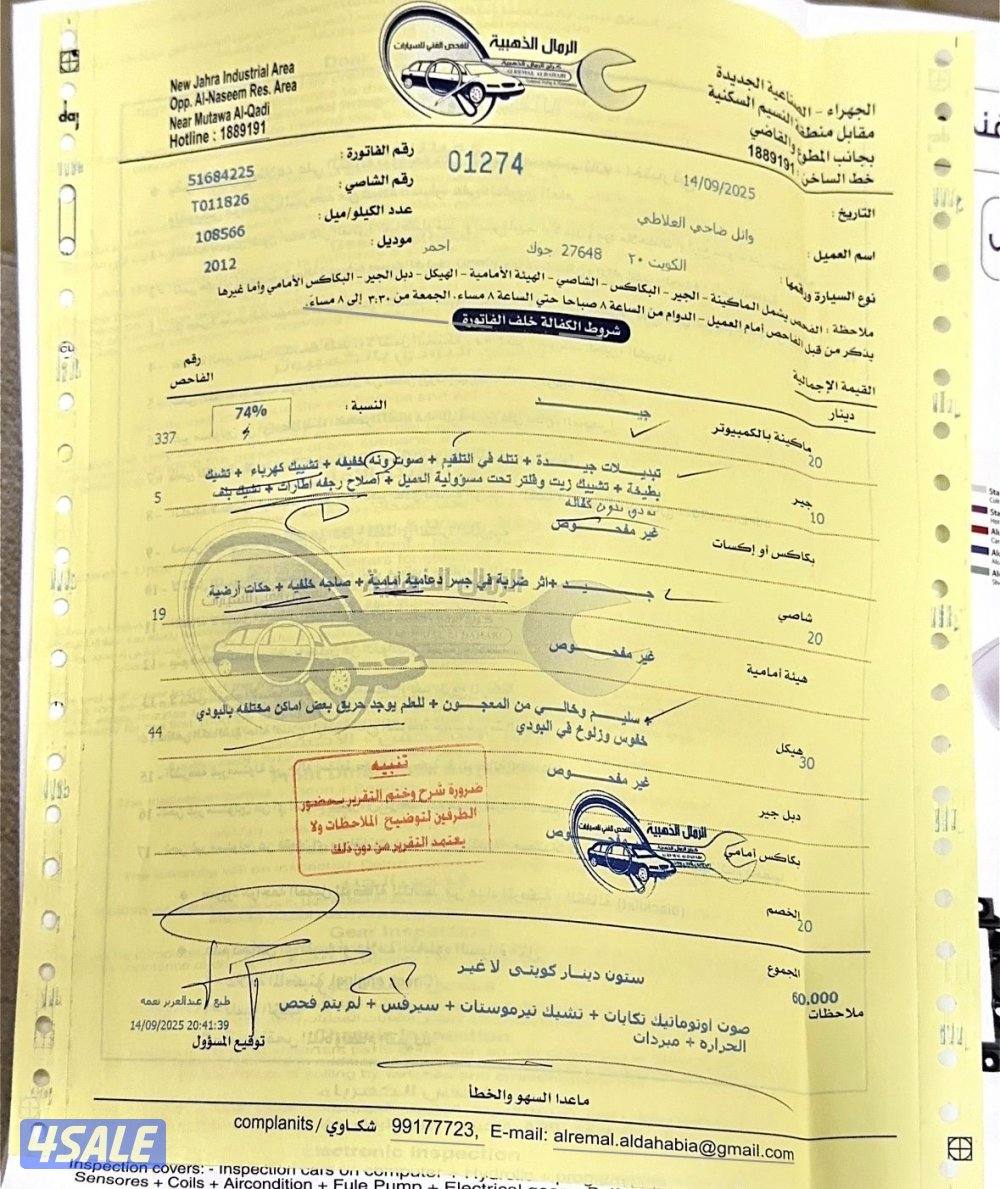 New Jahra Industrial Area
Opp. Al-Naseem Res. Area
Near Mutawa Al-Qadi
Hotline : 1889191
الرمال الذهبية
للفحص الفني للسيارات
كراج الرمال الذهبية
ALREMAL ALDAHABI
الجهراء - الصناعية الجديدة
مقابل منطقة النسيم السكنية
بجانب المطوع والقاضي
خط الساخن: 1889191
رقم الفاتورة : 01274
51684225
14/09/2025
التاريخ :
رقم الشاصي :
T011826
وائل ضاحي العلاطي
اسم العميل :
عدد الكيلو/ميل :
108566
الكويت ٢٠ 27648 جوك احمر
نوع السيارة ورقمها :
موديل :
2012
ملاحظة : الفحص يشمل الماكينة - الجير - البكاكس - الشاصي - الهيئة الأمامية - الهيكل - دبل الجير - البكاكس الأمامي وأما غيرها
يذكر من قبل الفاحص أمام العميل - الدوام من الساعة ٨ صباحا حتي الساعة ٨ مساء. الجمعة من ٣:٣٠ إلى ٨ مساء.
شروط الكفالة خلف الفاتورة
القيمة الإجمالية
دينار
رقم الفاحص
ماكينة بالكمبيوتر
20
جيـــــد
النسبة :
74%
337
تبديلات جيـدة + نتله في التلقيم + صوت ونه خفيفه + تشييك كهرباء + تشيك
بطيخة + تشييك زيت وفلتر تحت مسؤولية العميل + اصلاح رجفه اطارات + تشيك بلف
بدون كفاله
جير
10
5
غير مفحـــوص
بكاكس أو إكسات
جـــيـــد +اثر ضربة في جسر دعامية أمامية + صاجه خلفيه + حكات أرضية
شاصي
20
19
غير مفحـــوص
هيئة أمامية
+ سليم وخالي من المعجـون + للعلم يوجد حريق بعض اماكن مختلفه بالبودي
خفوس وزلوخ في البودي
هيكل
30
44
غير مفحـــوص
دبل جير
تنبيه
ضرورة شرح وختم التقرير بحضور
الطرفين لتوضيح الملاحظات ولا
يعتمد التقرير من دون ذلك
مفحـــوص
بكاكس أمامي
الرمال الذهبية
للفحص الفني للسيارات
الخصم
20
المجموع
60.000
ستون دينار كويتى لا غير
ملاحظات
صوت اوتوماتيك تكايات + تشيك تيرموستات + سيرفس + لم يتم فحص
الحراره + مبردات
طبع / عبدالعزيز نعمه
14/09/2025 20:41:39
توقيع المسؤول
ماعدا السهو والخطأ
complanits / شكاوي 99177723, E-mail: alremal.aldahabia@gmail.com
4SALE
Inspection covers: - Inspection cars on computer +
Sensores + Coils + Aircondition + Fule Pump +